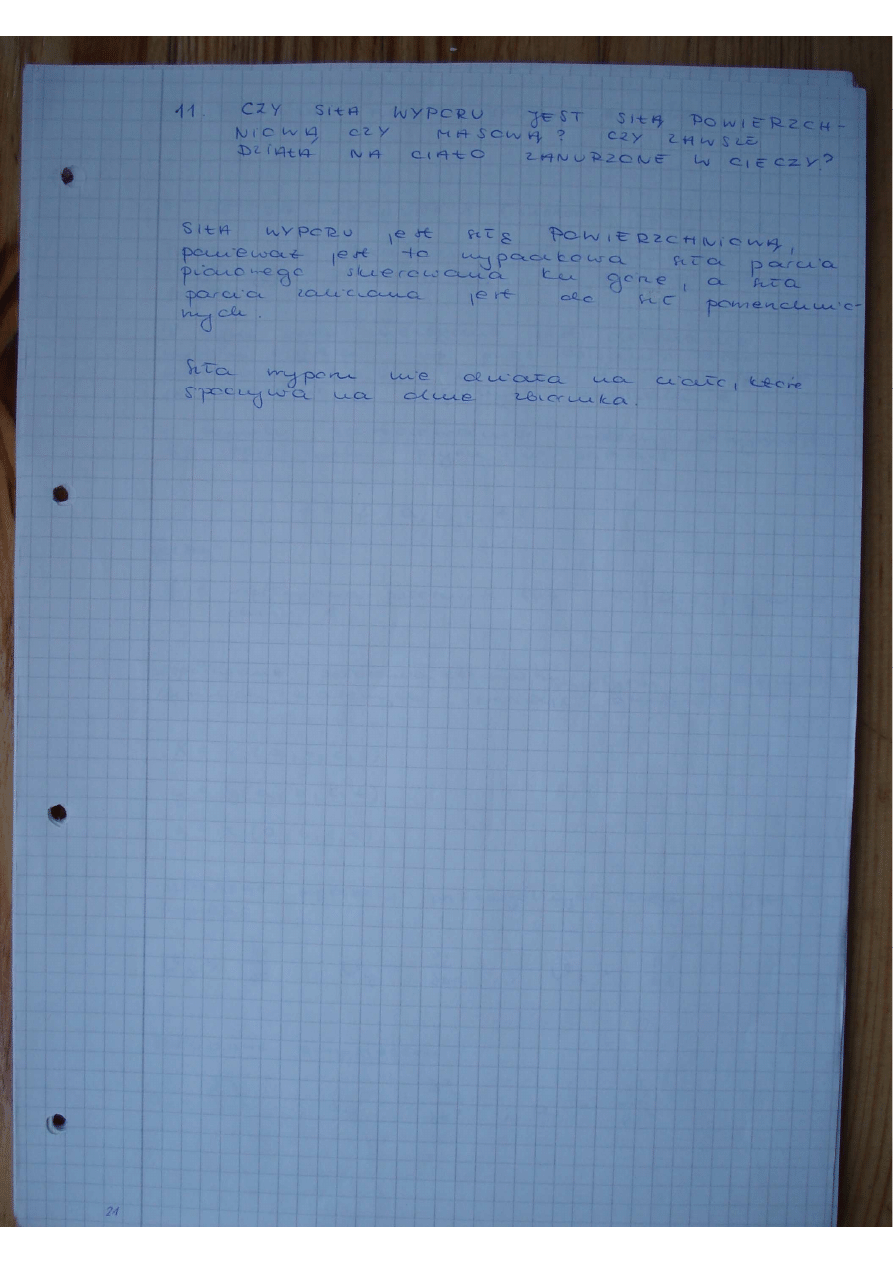 11. CZY SIŁA WYPORU JEST SIŁĄ POWIERZCH-
NIOWĄ CZY MASOWĄ? CZY ZAWSZE
DZIAŁA NA CIAŁO ZANURZONE W CIECZY?
SIŁA WYPORU jest siłą POWIERZCHNIOWĄ,
ponieważ jest to wypadkowa siła parcia
pionowego skierowana ku górze, a siła
parcia zaliczana jest do sił powierzchnio-
wych.
Siła wyporu nie działa na ciało, które
spoczywa na dnie zbiornika.
21